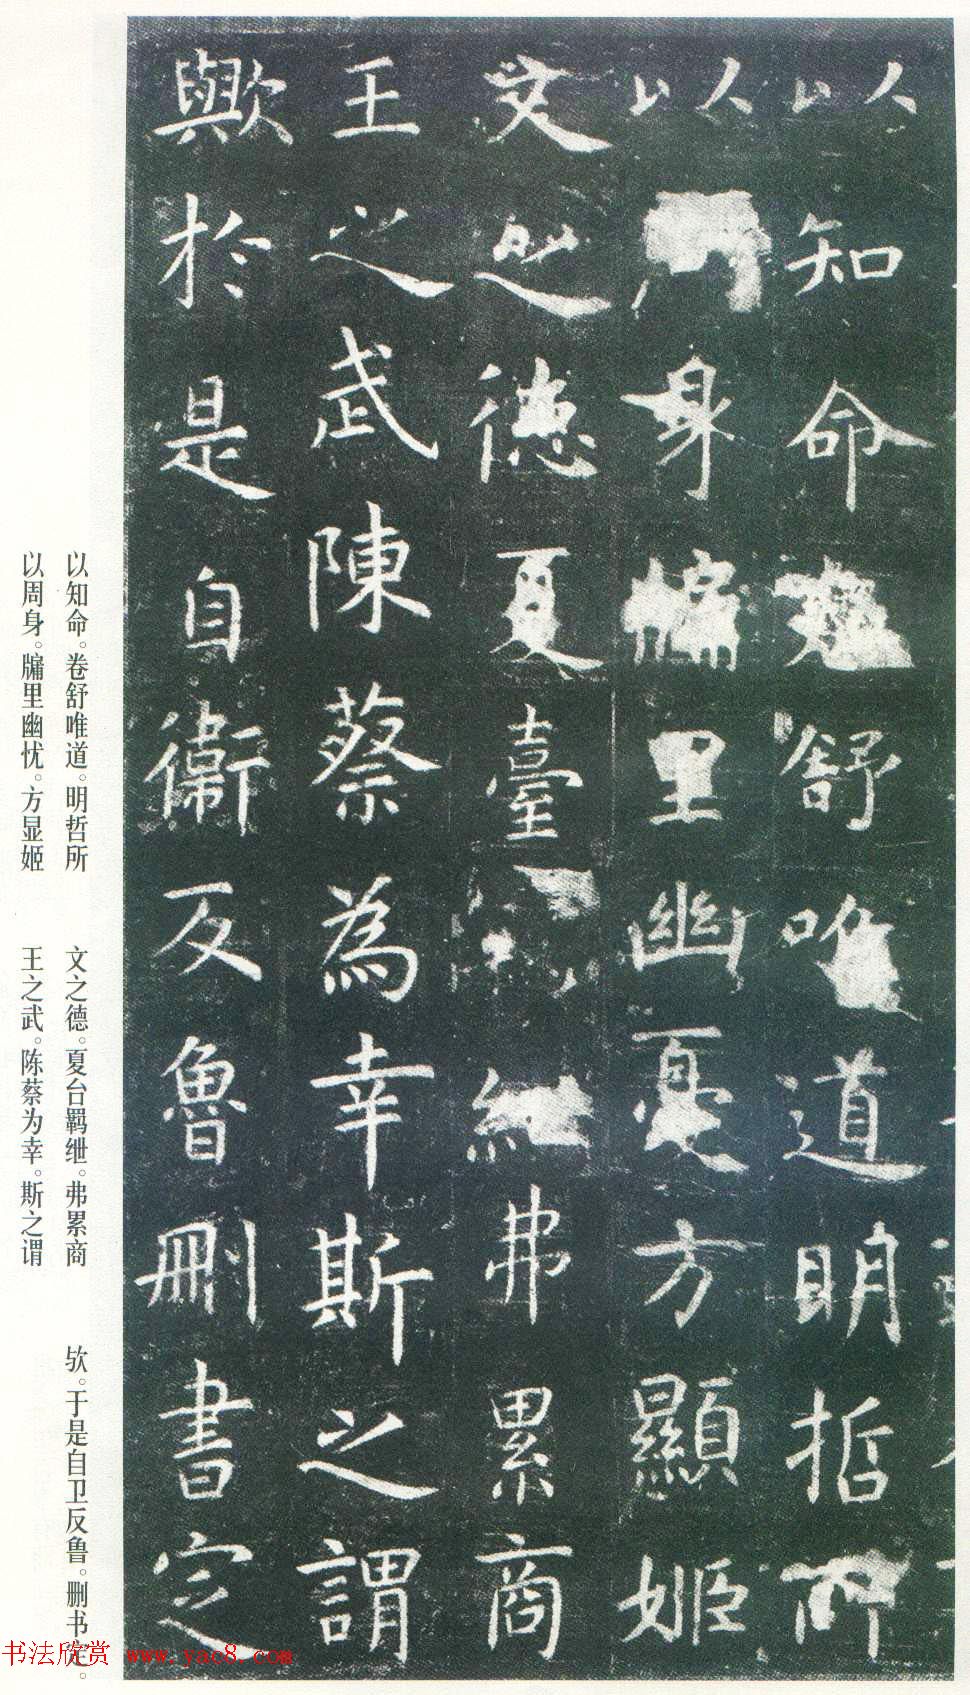 以知命卷舒唯道明哲所
以周身牖里幽憂方顯姬
文之德夏臺羈紲弗累商
王之武陳蔡為幸斯之謂
歟於是自衛反魯刪書定
以知命。卷舒唯道。明哲所
以周身。牖里幽忧。方显姬
文之德。夏台羁绁。弗累商
王之武。陈蔡为幸。斯之谓
欤。于是自卫反鲁。删书定。
书法欣赏 www.yac8.com